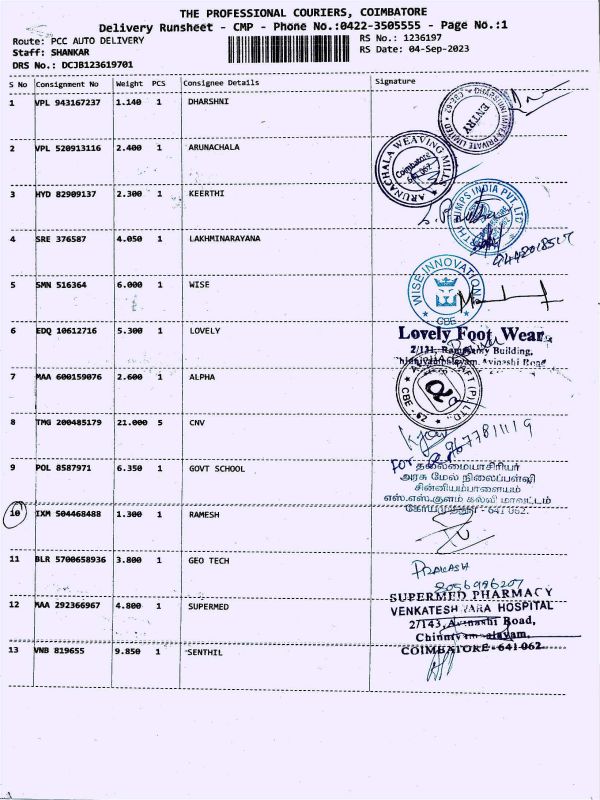 THE PROFESSIONAL COURIERS, COIMBATORE
Delivery Runsheet - CMP - Phone No.:0422-3505555 - Page No.:1
Route: PCC AUTO DELIVERY RS No.: 1236197
Staff: SHANKAR RS Date: 04-Sep-2023
DRS No.: DCJB123619701
S No Consignment No Weight PCS Consignee Details Signature
1 VPL 943167237 1.140 1 DHARSHNI
ENTRY
2 VPL 520913116 2.400 1 ARUNACHALA
ARUNACHALA WEAVING MILLS
Coimbatore
641 062.
3 HYD 82909137 2.300 1 KEERTHI
IMPS INDIA PVT. LTD
4 SRE 376587 4.050 1 LAKHMINARAYANA
5 SMN 516364 6.000 1 WISE
WISE INNOVATION
CBE
6 EDQ 10612716 5.300 1 LOVELY
Lovely Foot Wear
2/131, Building,
Avinashi Road
7 MAA 600159076 2.600 1 ALPHA
CBE - 62
8 TMG 200485179 21.000 5 CNV
9677811119
9 POL 8587971 6.350 1 GOVT SCHOOL
FOR தலைமையாசிரியர்
அரசு மேல் நிலைப்பள்ளி
சின்னியம்பாளையம்
எஸ்.எஸ்.குளம் கல்வி மாவட்டம்
கோயமுத்தூர் - 641 062.
10 IXM 504468488 1.300 1 RAMESH
11 BLR 5700658936 3.800 1 GEO TECH
PRAKASH
12 MAA 292366967 4.800 1 SUPERMED
SUPERMED PHARMACY
VENKATESHWARA HOSPITAL
27/143, Avinashi Road,
COIMBATORE - 641 062.
13 VNB 819655 9.850 1 SENTHIL